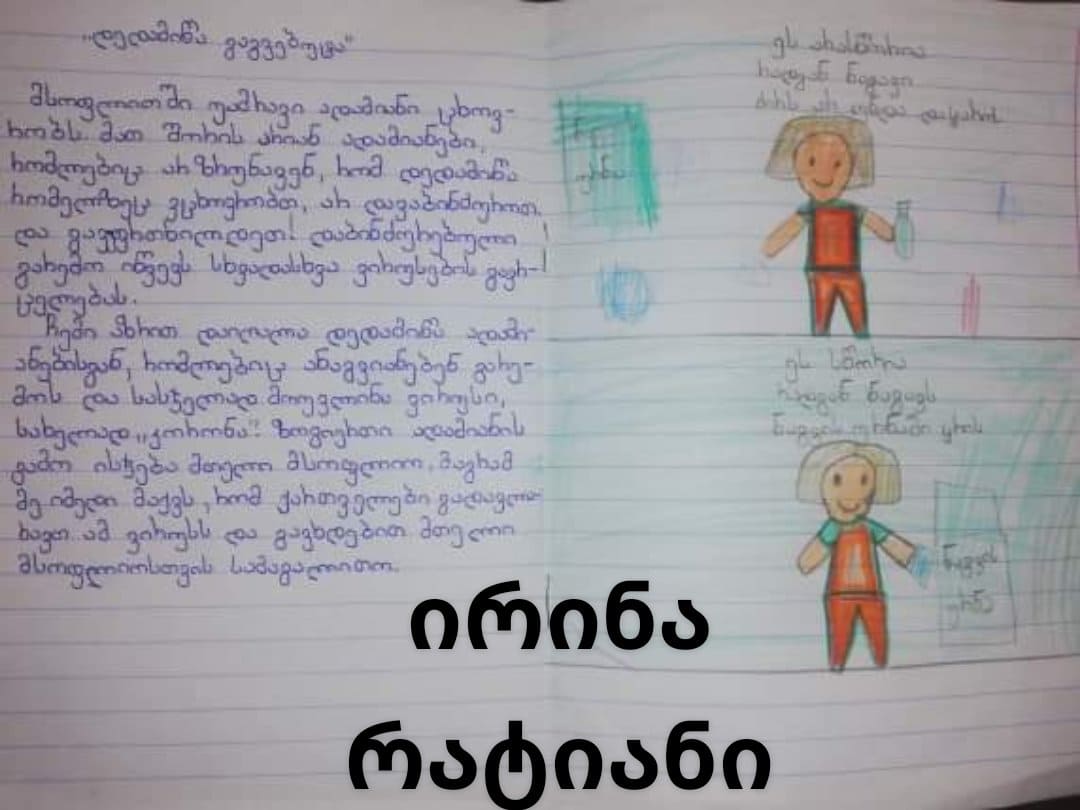 „დედამიწა გაგვებუტა“
მსოფლიოში უამრავი ადამიანი ცხოვ-
რობს. მათ შორის არიან ადამიანები,
რომლებიც არ ზრუნავენ, რომ დედამიწა
რომელზეც ვცხოვრობთ, არ დავაბინძუროთ.
და გავუფრთხილდეთ! დაბინძურებული
გარემო იწვევს სხვადასხვა ვირუსების გავრ-
ცელებას.
ჩემი აზრით დაიღალა დედამიწა ადამი-
ანებისგან, რომლებიც ანაგვიანებენ გარე-
მოს და სასჯელად მოევლინა ვირუსი,
სახელად „კორონა“. ზოგიერთი ადამიანის
გამო ისჯება მთელი მსოფლიო, მაგრამ
მე იმედი მაქვს, რომ ქართველები გადავლა-
ხავთ ამ ვირუსს და გავხდებით მთელი
მსოფლიოსთვის სამაგალითო.
ეს არასწორია
რადგან ნაგავი
ძირს არ უნდა დაყაროს
ურნა
ეს სწორია
რადგან ნაგავს
ნაგვის ურნაში ყრის
ნაგვის
ურნა
ირინა
რატიანი